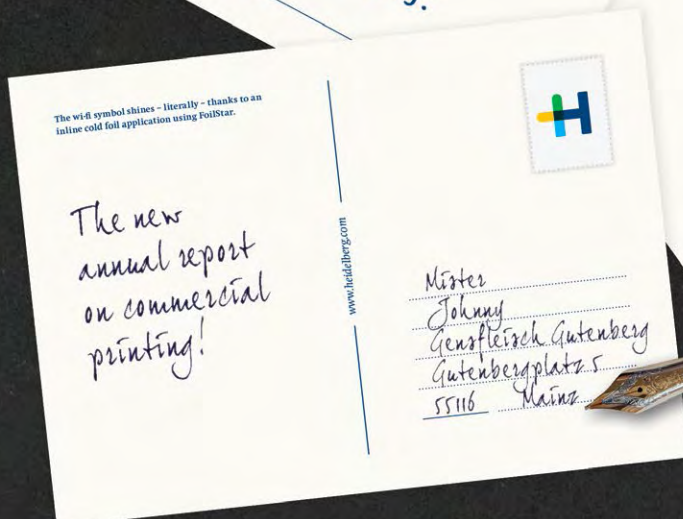 The wi-fi symbol shines – literally – thanks to an
inline cold foil application using FoilStar.
The new
annual report
on commercial
printing!
www.heidelberg.com
H
Mister
Johnny
Gensfleisch Gutenberg
Gutenbergplatz 5
55116 Mainz